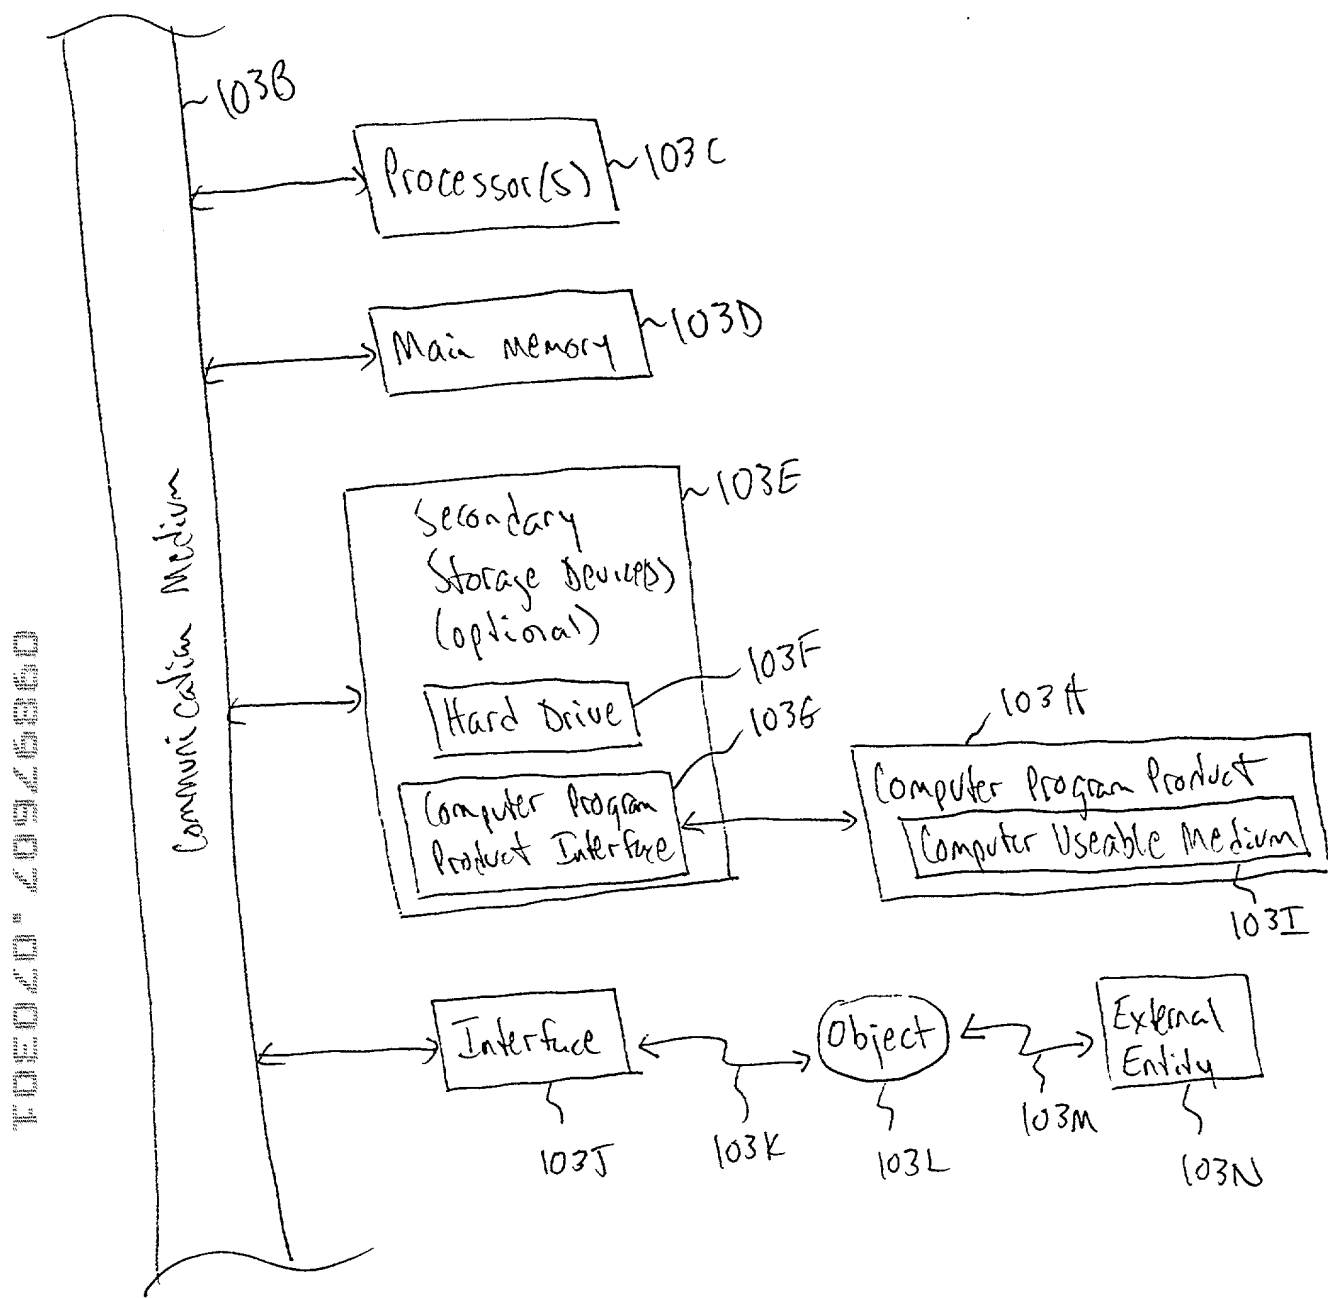 103B
Processor(s)
103C
Main Memory
103D
Communication Medium
Secondary
Storage Device(s)
(optional)
103E
Hard Drive
103F
Computer Program
Product Interface
103G
103A
Computer Program Product
Computer Useable Medium
103I
Interface
Object
External
Entity
103J
103K
103L
103M
103N
09897607.070301